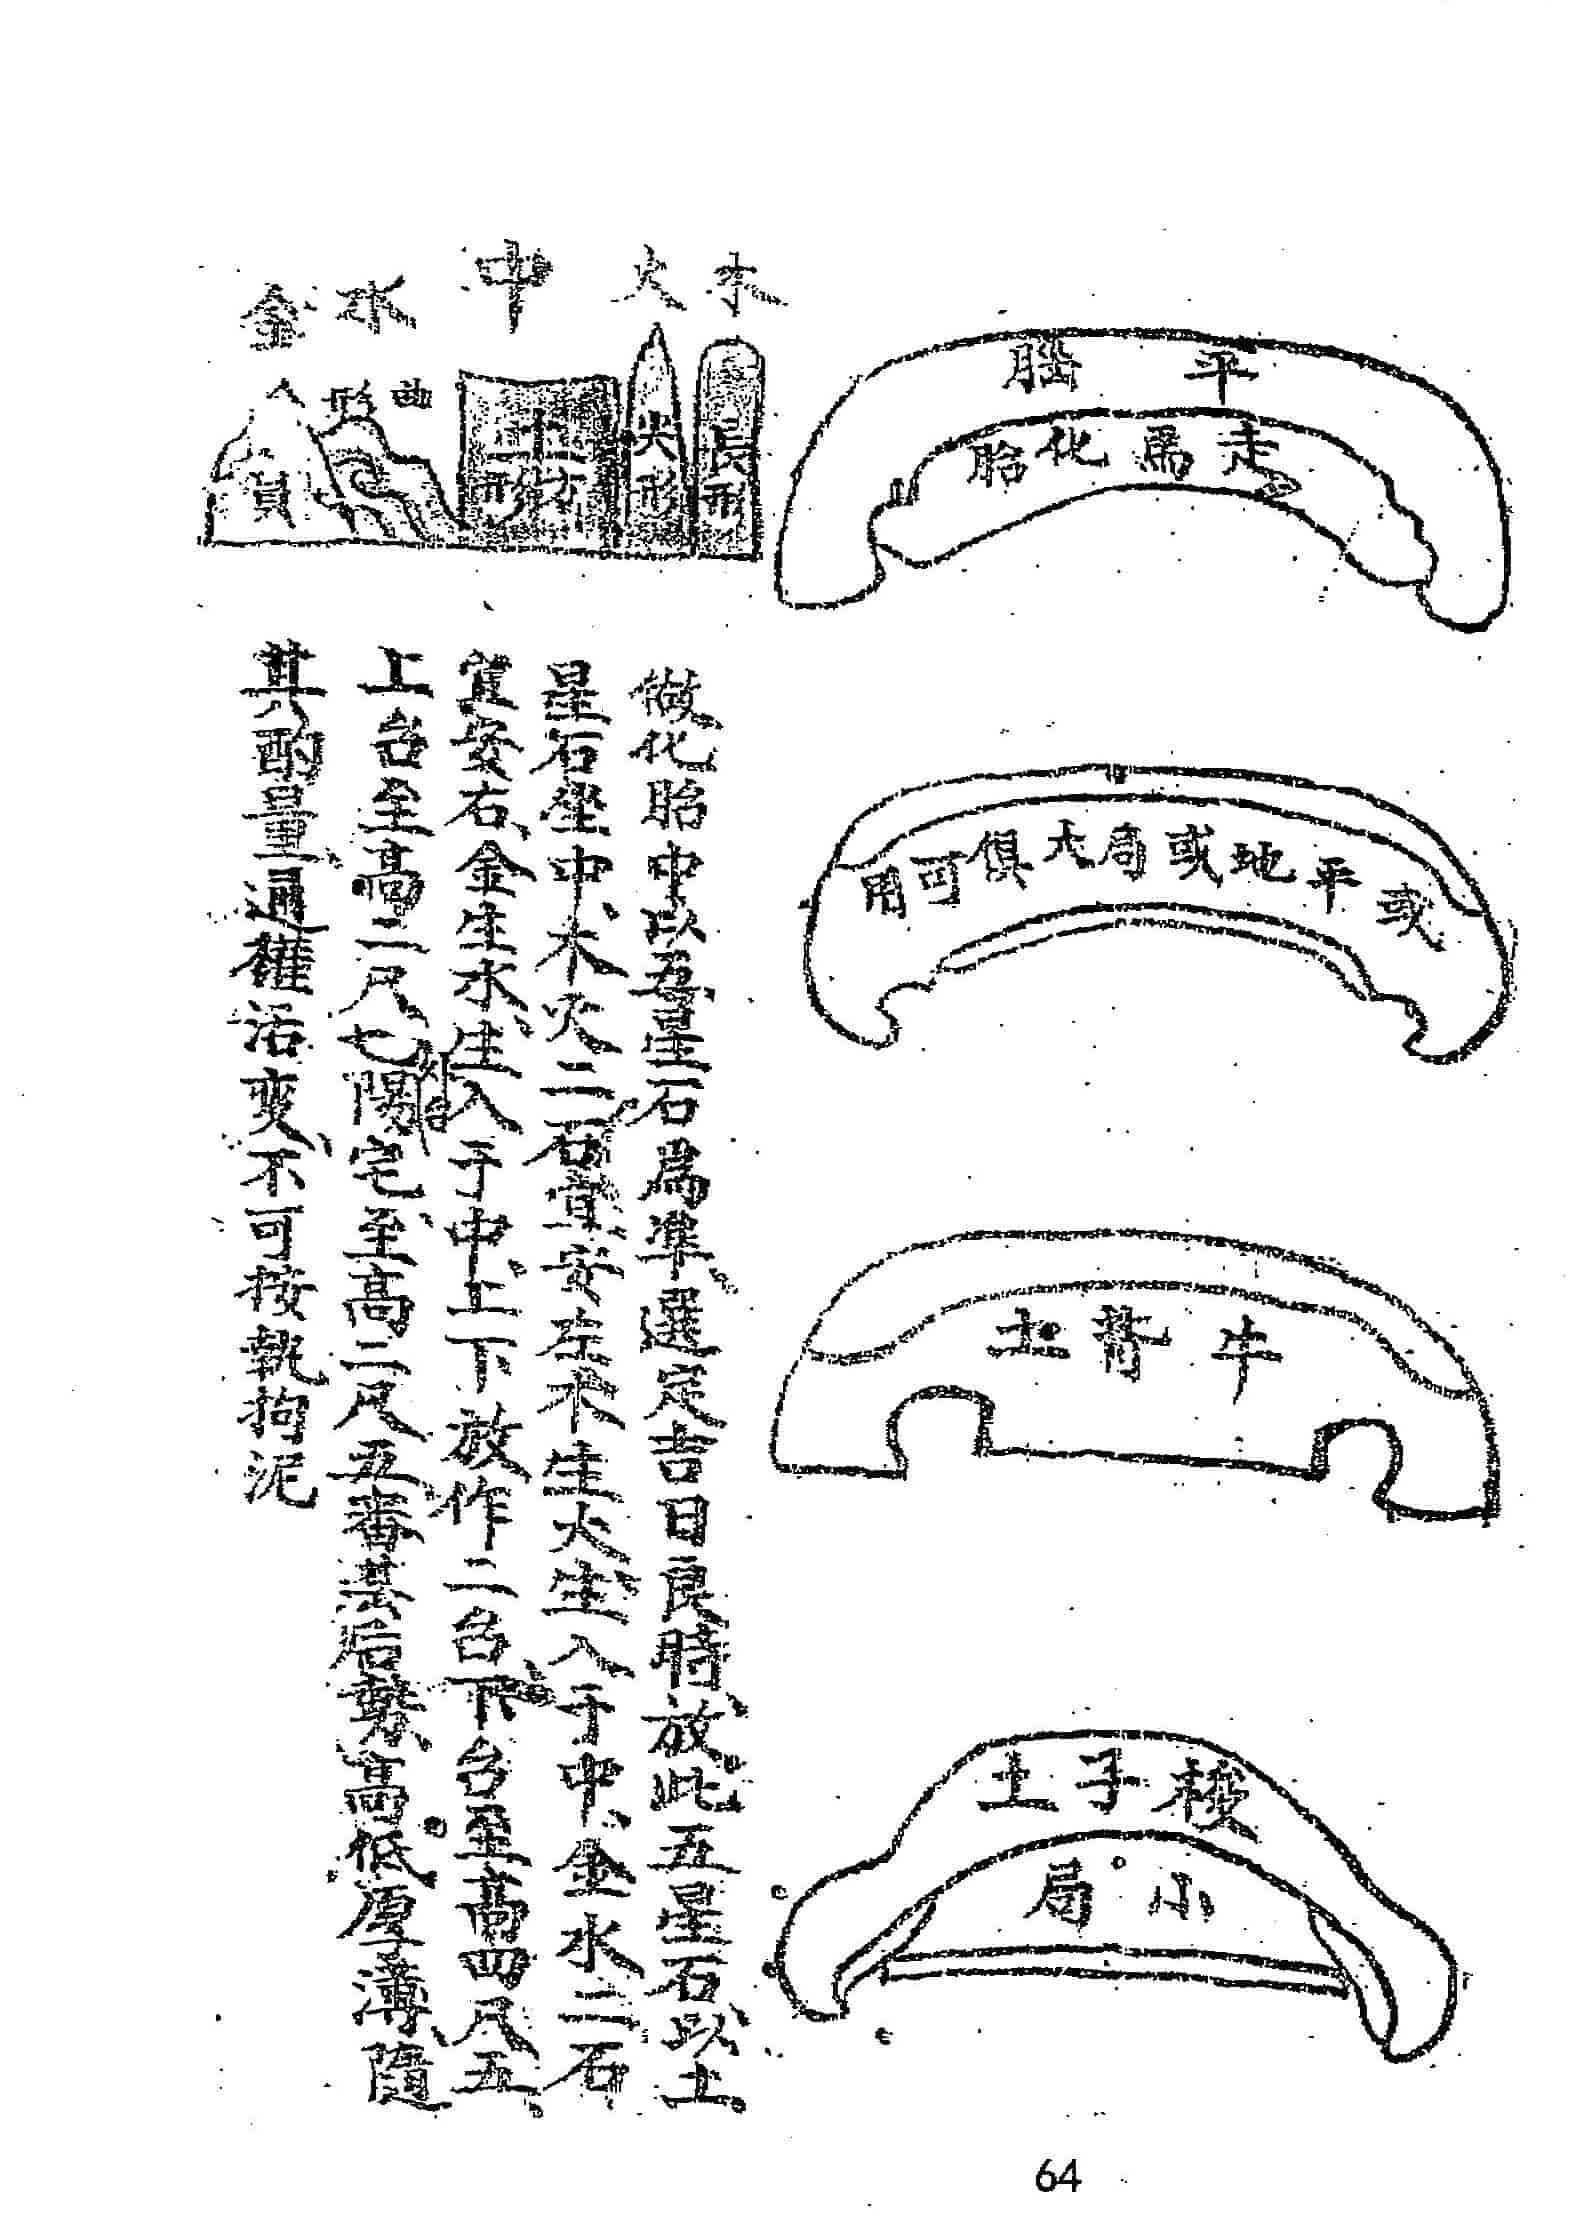 平腦
走馬化胎
或平地或局大俱可用
牛背土
梭子土
小局
木
火
中
水
金
長形
尖形
土正方形
曲形
員
做化胎中以五星石爲準、選定吉日良時、放此五星石、以土
星石坐中、木火二石宜安左、木生火、生入于中、金水二石
宜安右、金生水、生入于中、上下放作二台、下台至高四尺五、
上台至高二尺七、陽宅至高二尺五、審其后龍高低厚薄、隨
其酌量、通權活變、不可按執拘泥
64